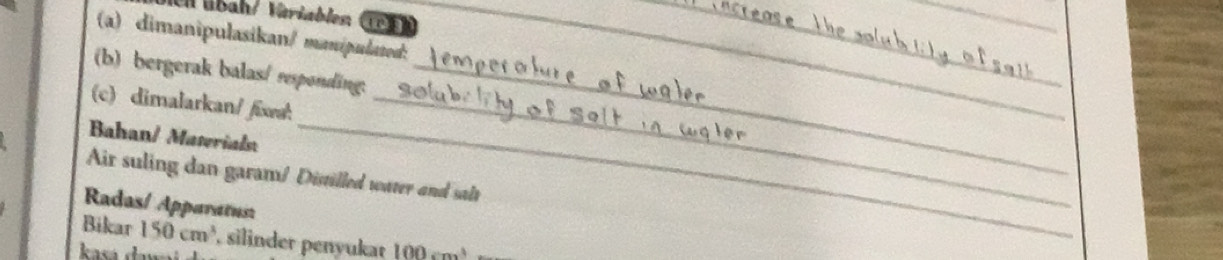 increase the solubility of salt
ubah/ Variables:
(a) dimanipulasikan/ manipulated: temperature of water
(b) bergerak balas/ responding: solubility of salt in water
(c) dimalarkan/ fixed:
Bahan/ Materials:
Air suling dan garam/ Distilled water and salt
Radas/ Apparatus:
Bikar 150 cm³, silinder penyukat 100 cm³
kasa